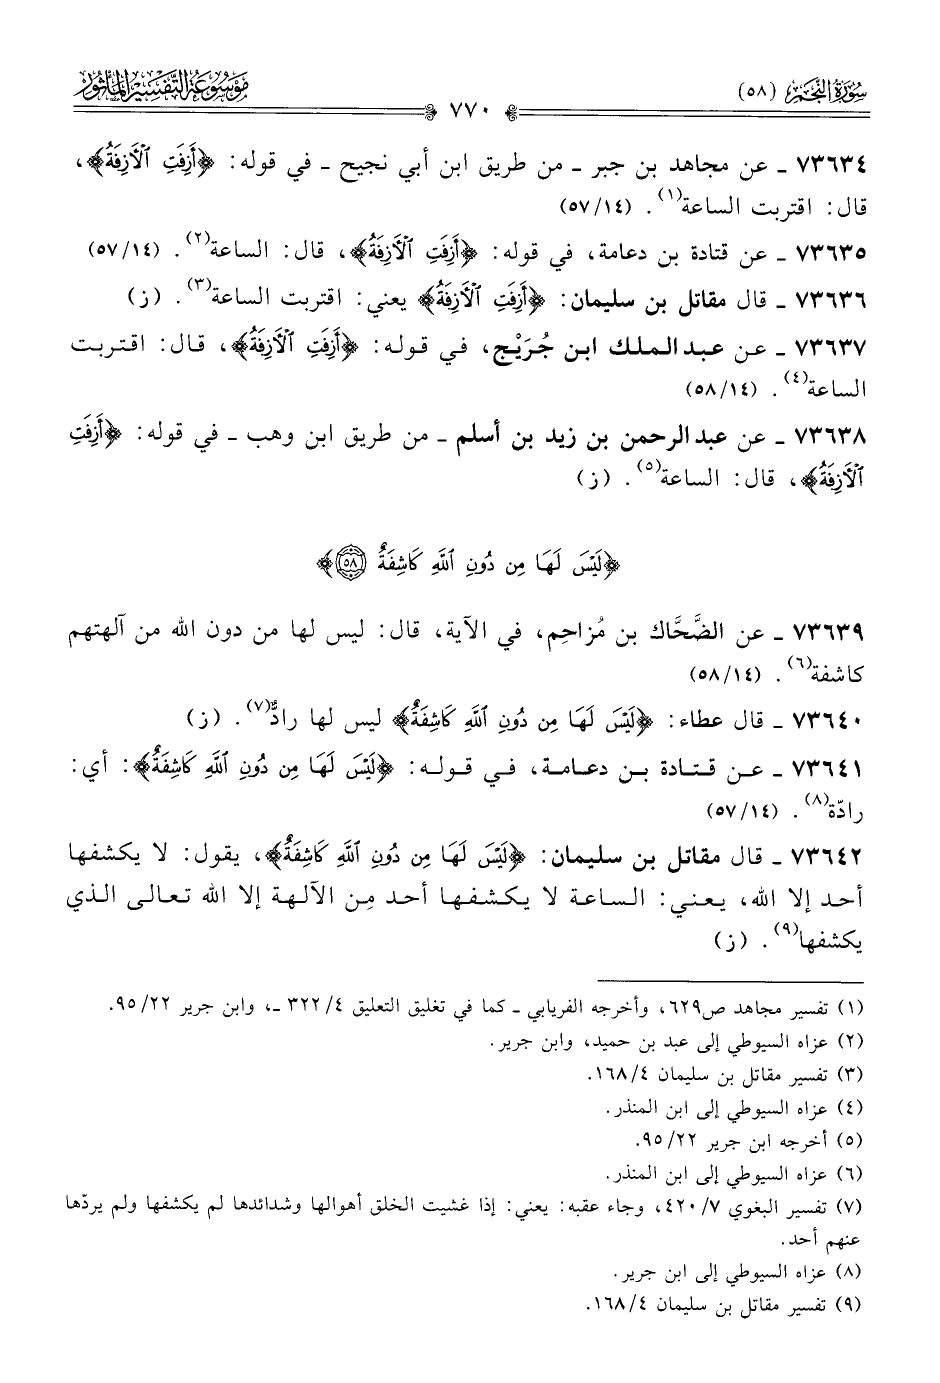 سورة النجم (٥٨)
٧٧٠
موسوعة التفسير المأثور
٧٣٦٣٤ ـ عن مجاهد بن جبر ـ من طريق ابن أبي نجيح ـ في قوله: ﴿أَزِفَتِ ٱلْأَزِفَةُ﴾،
قال: اقتربت الساعة(١). (٥٧/١٤)
٧٣٦٣٥ ـ عن قتادة بن دعامة، في قوله: ﴿أَزِفَتِ ٱلْأَزِفَةُ﴾، قال: الساعة(٢). (٥٧/١٤)
٧٣٦٣٦ ـ قال مقاتل بن سليمان: ﴿أَزِفَتِ ٱلْأَزِفَةُ﴾ يعني: اقتربت الساعة(٣). (ز)
٧٣٦٣٧ ـ عن عبد الملك ابن جُرَيْج، في قوله: ﴿أَزِفَتِ ٱلْأَزِفَةُ﴾، قال: اقتربت
الساعة(٤). (٥٨/١٤)
٧٣٦٣٨ ـ عن عبد الرحمن بن زيد بن أسلم ـ من طريق ابن وهب ـ في قوله: ﴿أَزِفَتِ
ٱلْأَزِفَةُ﴾، قال: الساعة(٥). (ز)
﴿لَيْسَ لَهَا مِن دُونِ ٱللَّهِ كَاشِفَةٌ ٥٨﴾
٧٣٦٣٩ ـ عن الضَّحَّاك بن مُزاحِم، في الآية، قال: ليس لها من دون الله من آلهتهم
كاشفة(٦). (٥٨/١٤)
٧٣٦٤٠ ـ قال عطاء: ﴿لَيْسَ لَهَا مِن دُونِ ٱللَّهِ كَاشِفَةٌ﴾ ليس لها رادٌّ(٧). (ز)
٧٣٦٤١ ـ عن قتادة بن دعامة، في قوله: ﴿لَيْسَ لَهَا مِن دُونِ ٱللَّهِ كَاشِفَةٌ﴾: أي:
رادّة(٨). (٥٧/١٤)
٧٣٦٤٢ ـ قال مقاتل بن سليمان: ﴿لَيْسَ لَهَا مِن دُونِ ٱللَّهِ كَاشِفَةٌ﴾، يقول: لا يكشفها
أحد إلا الله، يعني: الساعة لا يكشفها أحد مِن الآلهة إلا الله تعالى الذي
يكشفها(٩). (ز)
(١) تفسير مجاهد ص٦٢٩، وأخرجه الفريابي ـ كما في تغليق التعليق ٣٢٢/٤ ـ، وابن جرير ٩٥/٢٢.
(٢) عزاه السيوطي إلى عبد بن حميد، وابن جرير.
(٣) تفسير مقاتل بن سليمان ١٦٨/٤.
(٤) عزاه السيوطي إلى ابن المنذر.
(٥) أخرجه ابن جرير ٩٥/٢٢.
(٦) عزاه السيوطي إلى ابن المنذر.
(٧) تفسير البغوي ٤٢٠/٧، وجاء عقبه: يعني: إذا غشيت الخلق أهوالها وشدائدها لم يكشفها ولم يردّها
عنهم أحد.
(٨) عزاه السيوطي إلى ابن جرير.
(٩) تفسير مقاتل بن سليمان ١٦٨/٤.